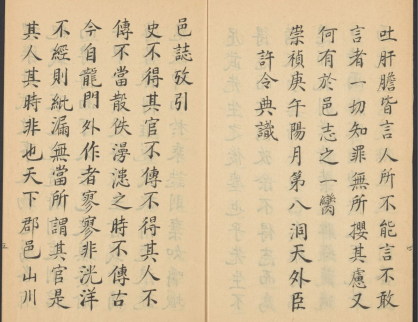 吐肝膽皆言人所不能言不敢
言者一切知罪無所攖其慮又
何有於邑志之一臠
崇禎庚午陽月第八洞天外臣
許令典識
邑誌攷引
史不得其官不傳不得其人不
傳不當散佚漫漶之時不傳古
今自龍門外作者寥寥非洸洋
不經則紕漏無當所謂其官是
其人其時非也天下郡邑山川